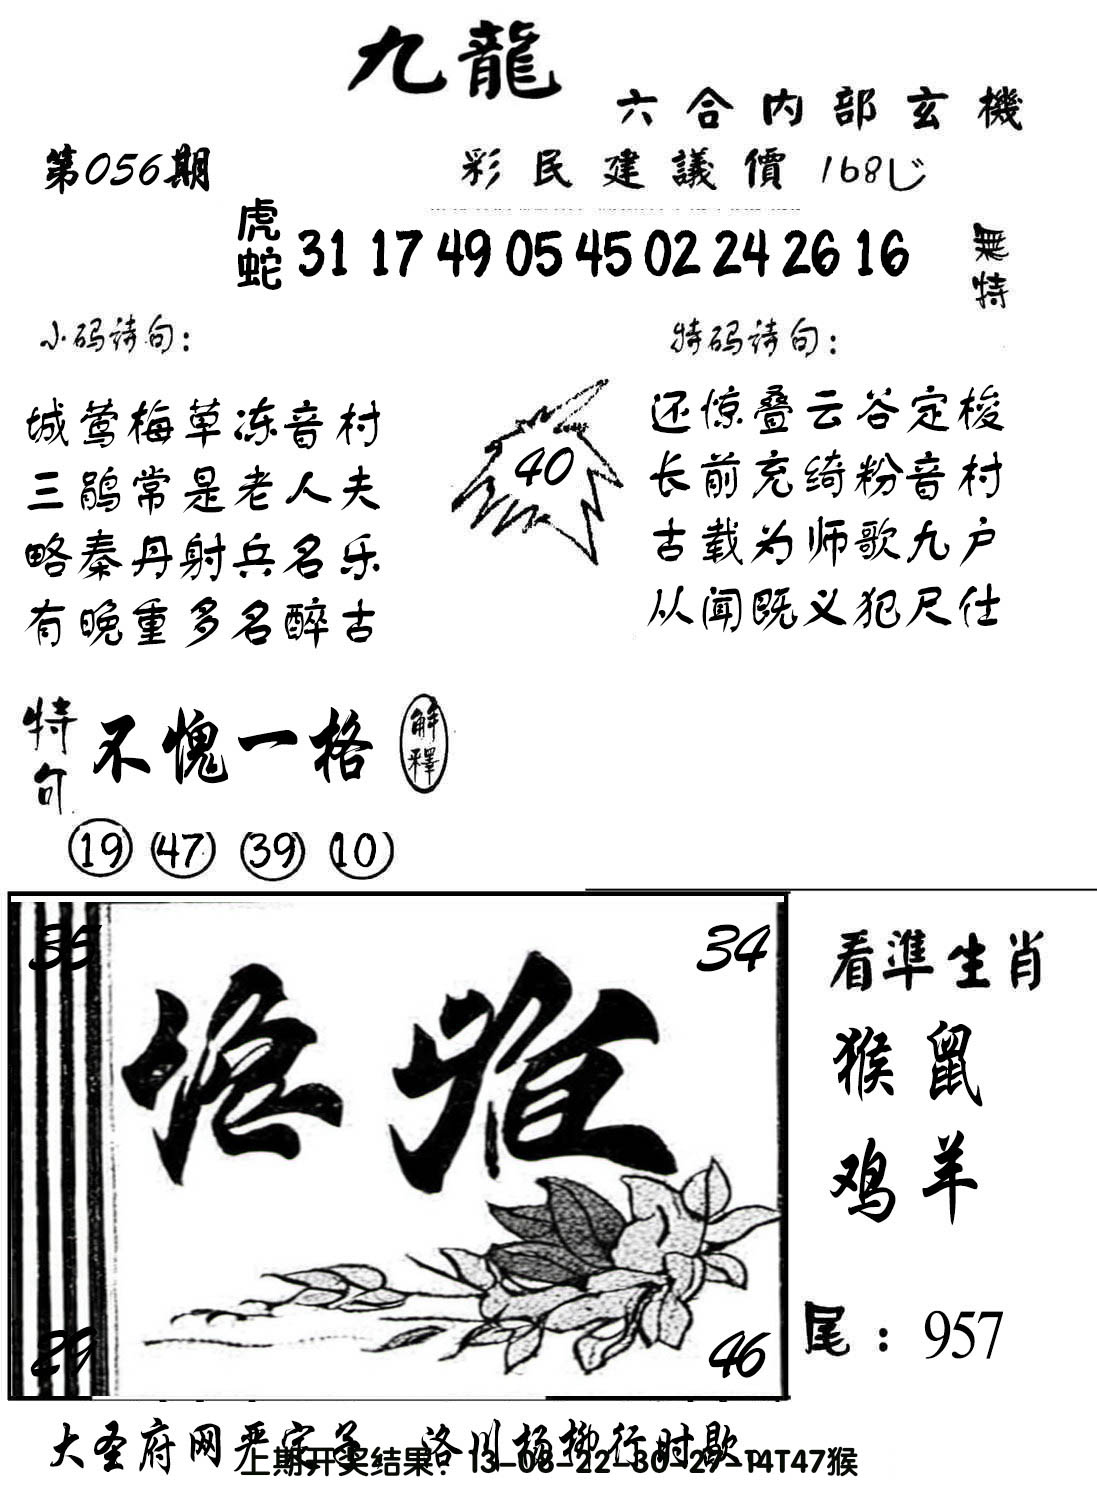 九龍
六合内部玄機
第056期
彩民建議價 168
虎蛇 31 17 49 05 45 02 24 26 16 無特
小码诗句：
特码诗句：
城莺梅草冻音村
三鹃常是老人夫
略秦丹射兵名乐
有晚重多名醉古
40
还惊叠云谷定梭
长前充绮粉音村
古载为师歌九户
从闻既义犯尺仕
特句 不愧一格 解釋
19 47 39 10
35 34
29 46
看準生肖
猴鼠
鸡羊
尾：957
大圣府网严定羊 洛川杨柳行时歇
上期开奖结果：13-08-22-30-29-14T47猴